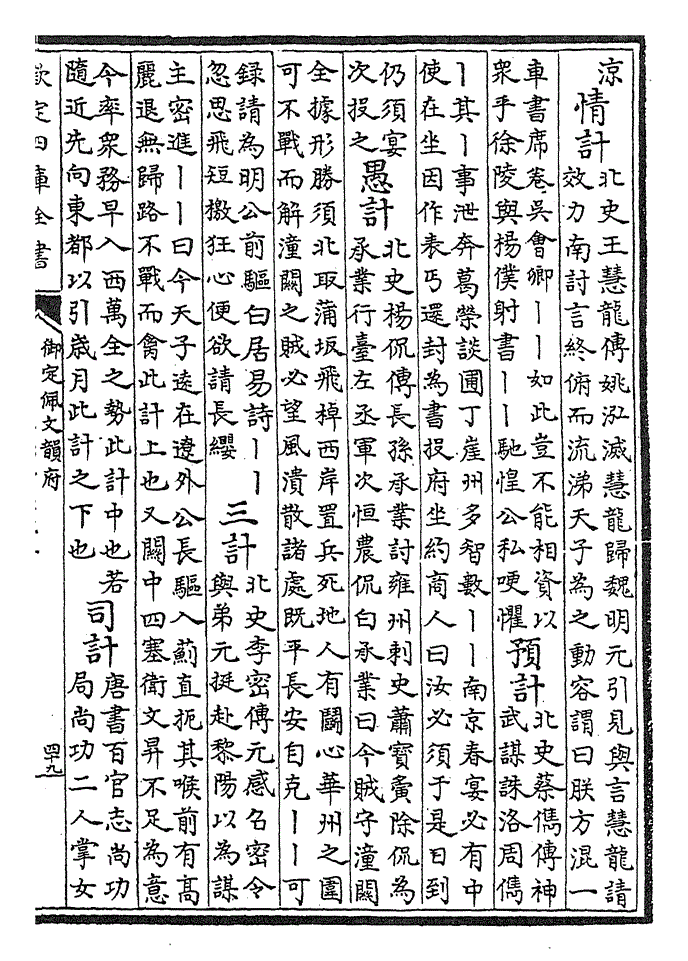 涼
情計
北史王慧龍傳姚泓滅慧龍歸魏明元引見與言慧龍請
效力南討言終俯而流涕天子為之動容謂曰朕方混一
車書席卷吳會卿丨丨如此豈不能相資以
衆乎徐陵與楊僕射書丨丨馳惶公私哽懼
預計
北史蔡儁傳神
武謀誅洛周儁
丨其丨事泄奔葛榮談圃丁崖州多智數丨丨南京春宴必有中
使在坐因作表丐還封為書投府坐約商人曰汝必須于是日到
仍須宴
次投之
愚計
北史楊侃傳長孫承業討雍州刺史蕭寶夤除侃為
承業行臺左丞軍次恒農侃白承業曰今賊守潼關
全據形勝須北取蒲坂飛棹西岸置兵死地人有鬭心華州之圍
可不戰而解潼關之賊必望風潰散諸處既平長安自克丨丨可
録請為明公前驅白居易詩丨丨
忽思飛短檄狂心便欲請長纓
三計
北史李密傳元感名密令
與弟元挺赴黎陽以為謀
主密進丨丨曰今天子逺在遼外公長驅入薊直扼其喉前有高
麗退無歸路不戰而禽此計上也又關中四塞衛文昇不足為意
今率衆務早入西萬全之勢此計中也若
隨近先向東都以引歳月此計之下也
司計
唐書百官志尚功
局尚功二人掌女
欽定四庫全書
御定佩文韻府
四十九